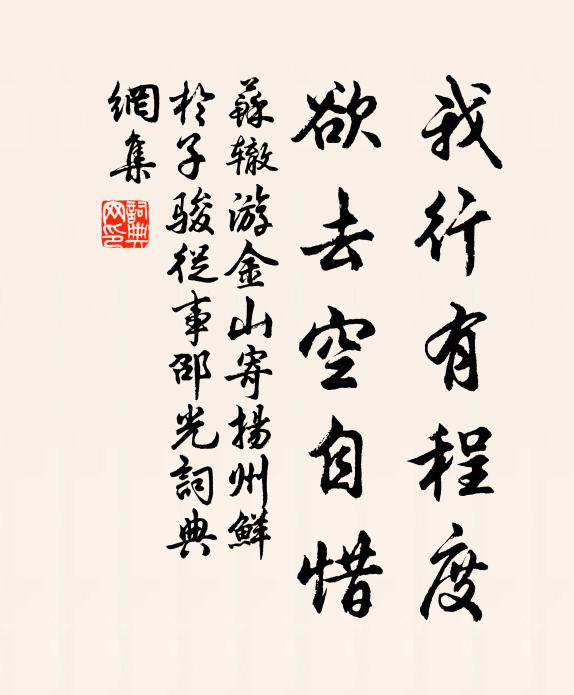 我行有程度
欲去空自惜
蘇轍游金山寄揚州鮮
於子駿從事邵光詞典
網集
詞典
网氾